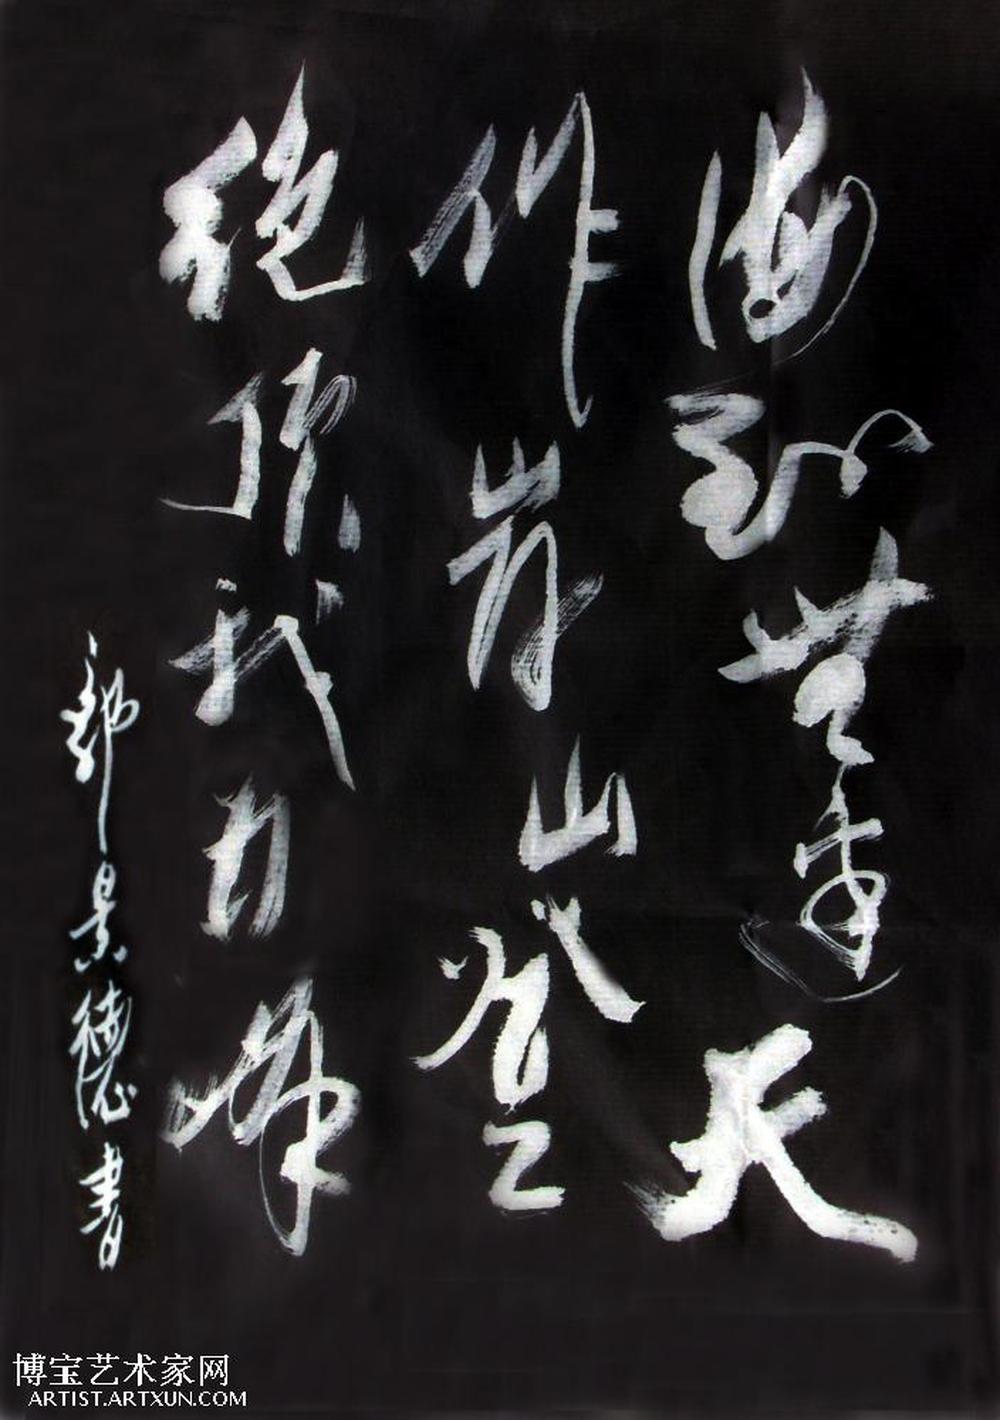 海到无边天
作岸山登
绝顶我为峰
郭景德书
博宝艺术家网
ARTIST.ARTXUN.COM